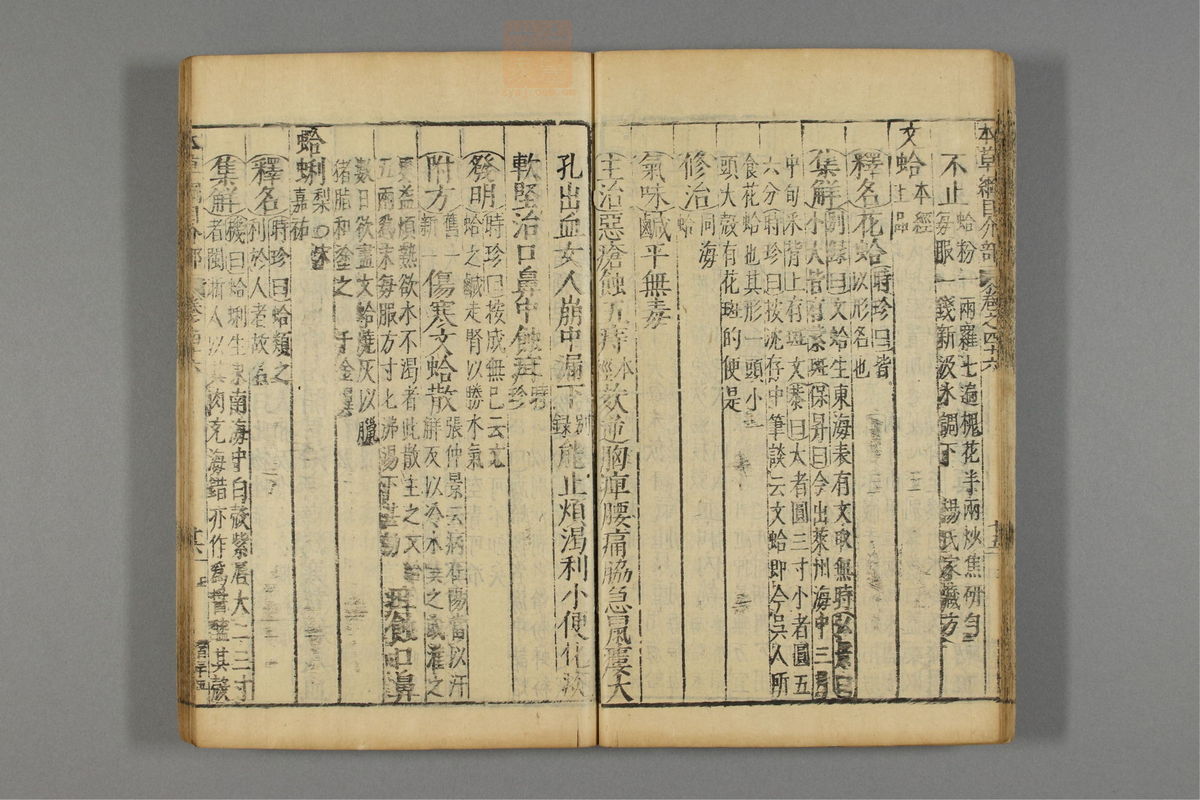 本草綱目介部
不止
蛤粉一兩羅七遍槐花半兩炒焦
每服一錢新汲水調下 楊氏家藏方
文蛤
本經
上品
釋名花蛤時珍曰皆
以形名也
集解別錄曰文蛤生東海表有文取無時
小大皆有紫斑保昇曰今出萊州海中三月
中旬采背上有斑文恭曰大者圓三寸小者圓五
六分時珍曰按沈存中筆談云文蛤即今吳人所
食花蛤也其形一頭小
頭大殼有花斑的便是
修治
同海
蛤
氣味鹹平無毒
主治惡瘡蝕五痔本經欬逆胸痺腰痛脇急鼠瘻大
孔出血女人崩中漏下別錄能止煩渴利小便化痰
軟堅治口鼻中蝕疳時珍
發明時珍曰按成無己云文
蛤之鹹走腎以勝水氣
附方舊一新一傷寒文蛤散張仲景云病在陽當以汗
解反以冷水噀之或灌之
更益煩熱欲水不渴者此散主之文蛤
五兩爲末每服方寸匕沸湯下甚効 疳蝕口鼻
數日欲盡文蛤燒灰以臘
猪脂和塗之 千金翼
蛤蜊
梨音
嘉祐
釋名時珍曰蛤類之
利於人者故名
集解機曰蛤蜊生東南海中白殼紫唇大二三寸
者閩浙人以其肉充海錯亦作爲醬醯其殼